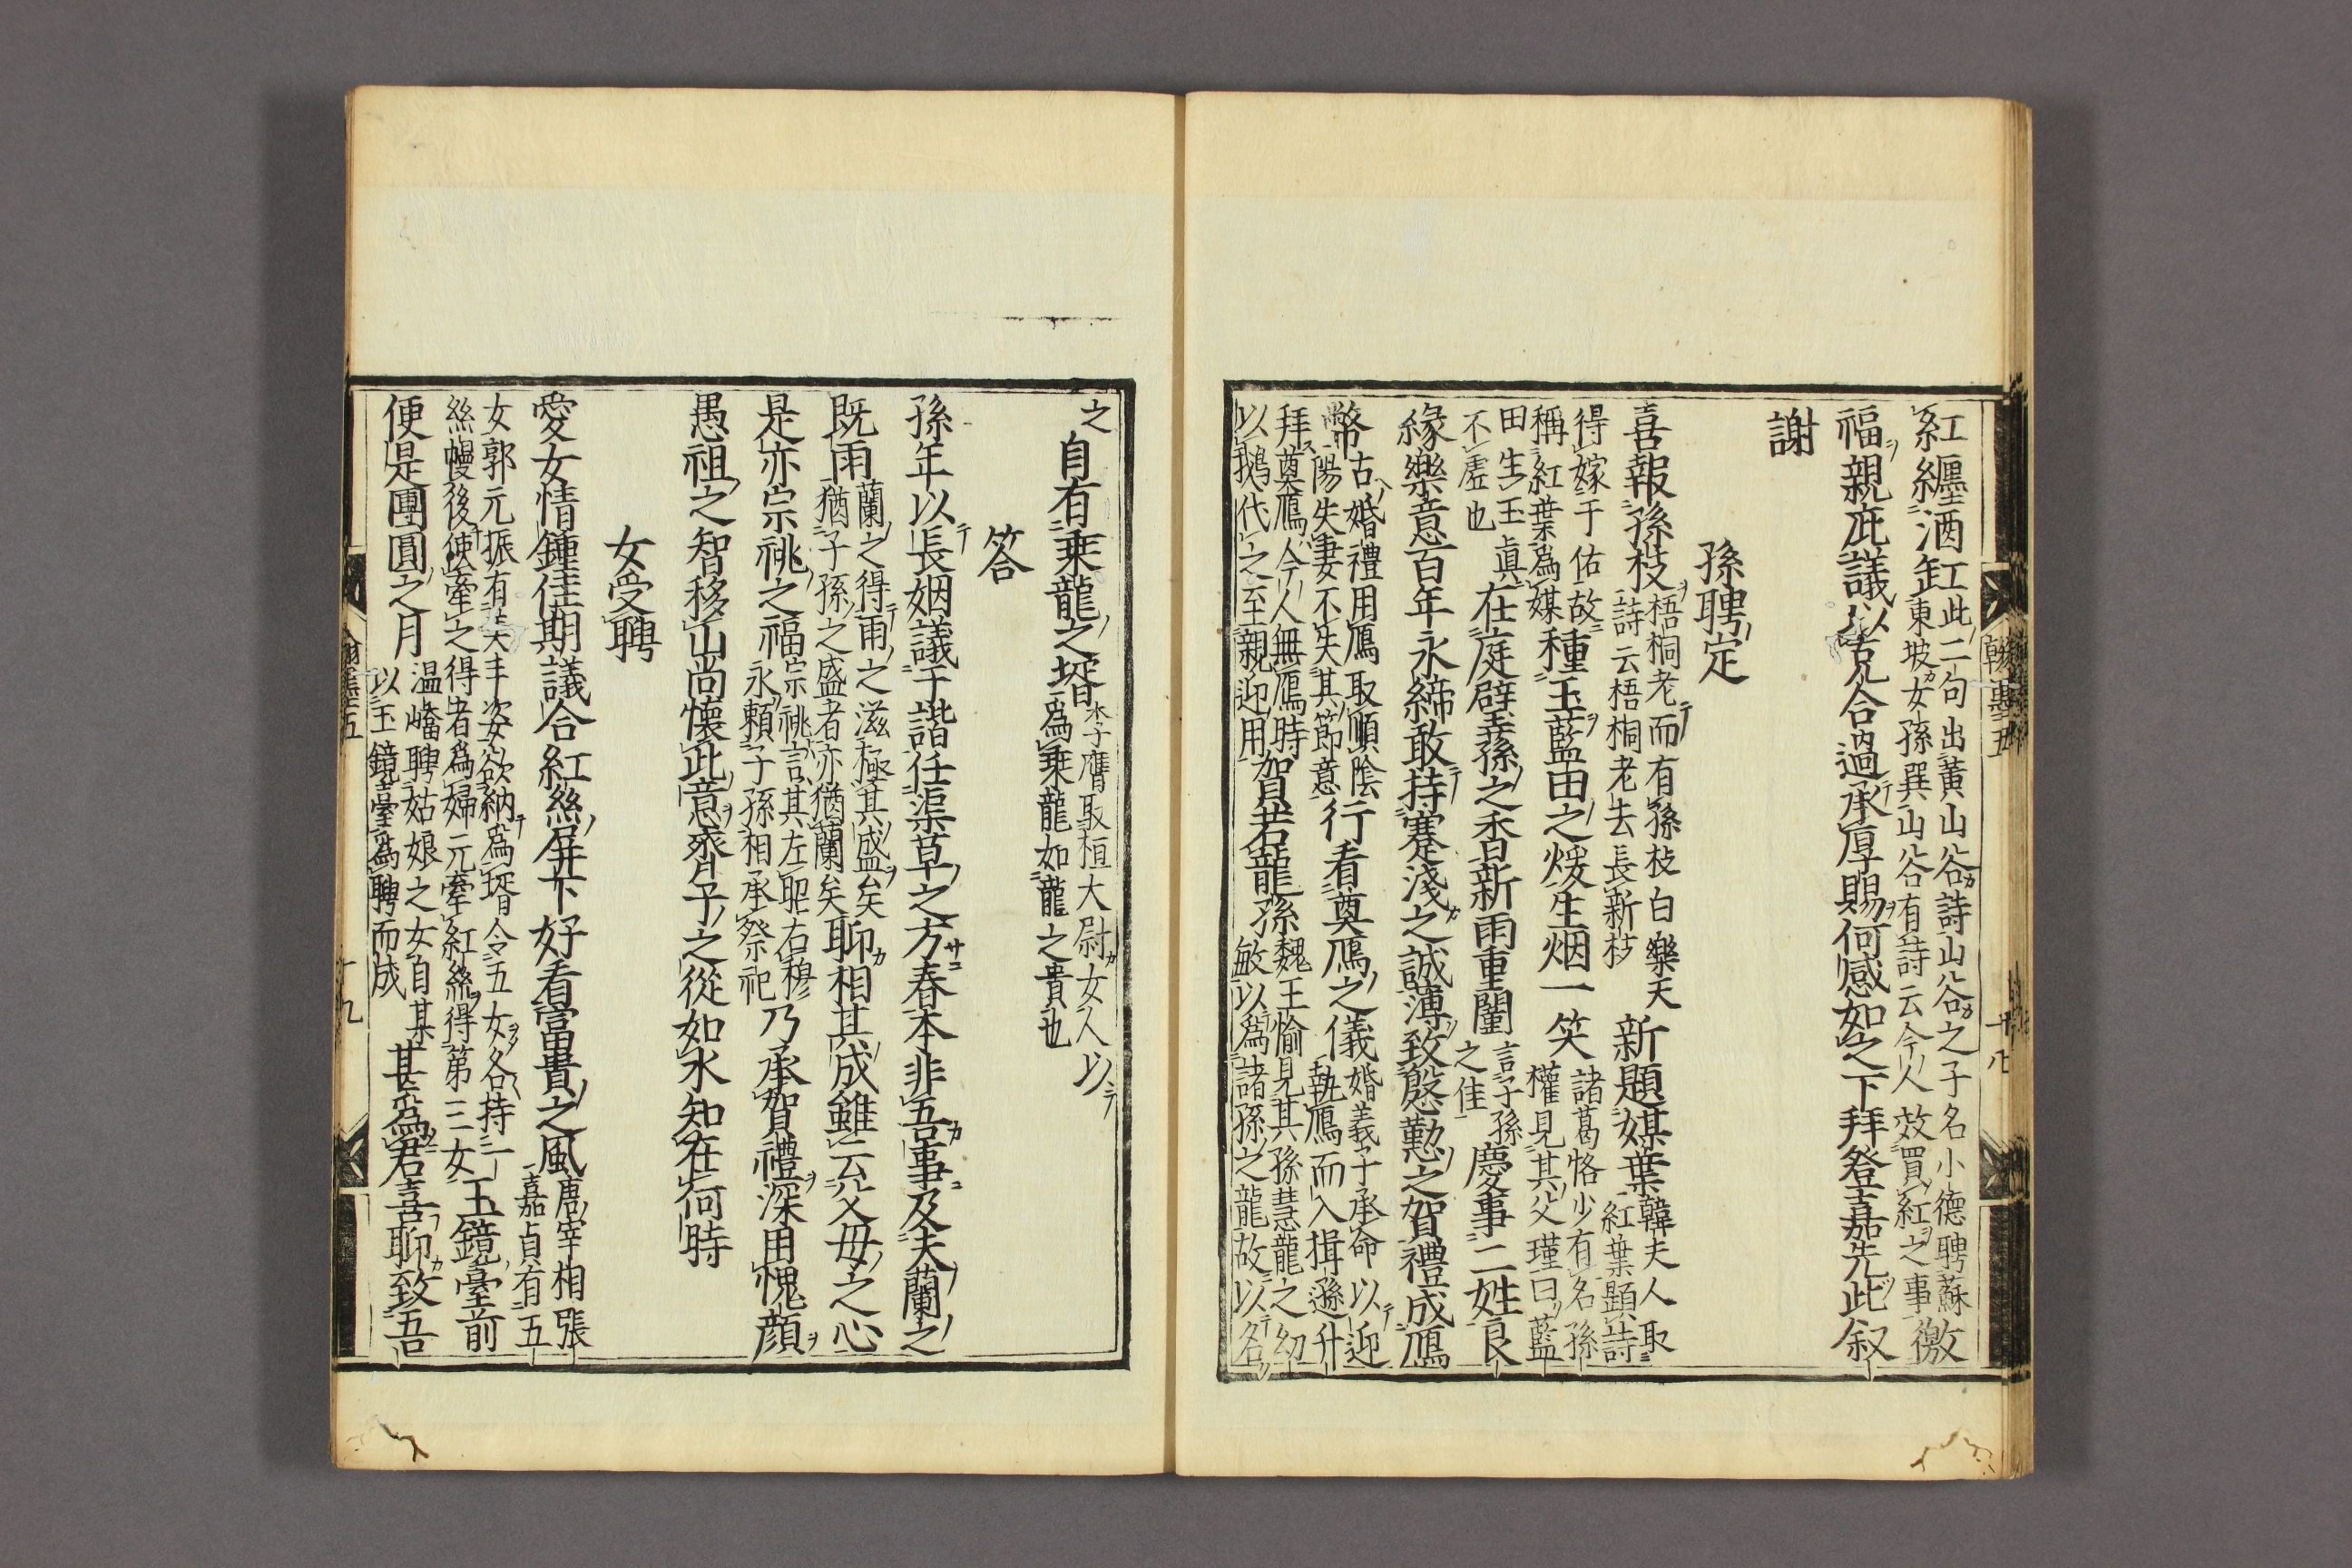 紅纒酒缸此二句出黃山谷詩山谷之子名小德聘蘇
東坡女孫巽山谷有詩云今人效買紅之事徼
福親庇議以克合過承厚賜何感如之下拜登嘉先此叙
謝
孫聘定
喜報孫枝梧桐老而有孫枝白樂天
詩云梧桐老去長新枝新題媒葉韓夫人取
紅葉題詩
得嫁于佑故
稱紅葉爲媒種玉藍田之煖生烟一笑諸葛恪少有名孫
權見其父瑾曰藍
田生玉眞
不虛也在庭磴孫之香新雨重闈言子孫
之佳慶事二姓良
緣樂意百年永締敢持蹇淺之誠薄致慇懃之賀禮成鴈
幣古婚禮用鴈取順陰
陽失妻不失其節意行看奠鴈之儀婚義子承命以迎
執鴈而入揖遜升
拜奠鴈今人無鴈時
以鵝代之至親迎用賀若龍孫魏王愉見其孫慧龍之幼
敏以爲諸孫之龍故以名
之自有乗龍之壻李膺取桓大尉女人以
爲乗龍如龍之貴也
答
孫年以長姻議于諧任渠草之方春本非吾事及夫蘭之
既雨蘭之得雨之滋極其盛矣
猶子孫之盛者亦猶蘭矣聊相其成雖云父毋之心
是亦宗祧之福宗祧言其左昭右穆
永賴子孫相承祭祀乃承賀禮深用愧顔
愚祖之智移山尚懷此意癠予之從如水知在何時
女受聘
愛女情鍾佳期議合紅絲屏下好看富貴之風唐宰相張
嘉貞有五
女郭元振有美丰姿欲納爲壻令五女各持一
絲幔後使牽之得者爲婦元牽紅絲得第三女玉鏡臺前
便是團圓之月温嶠聘姑娘之女自某
以玉鏡臺爲聘而成甚爲君喜聊致吾
翰墨五
十八
十九